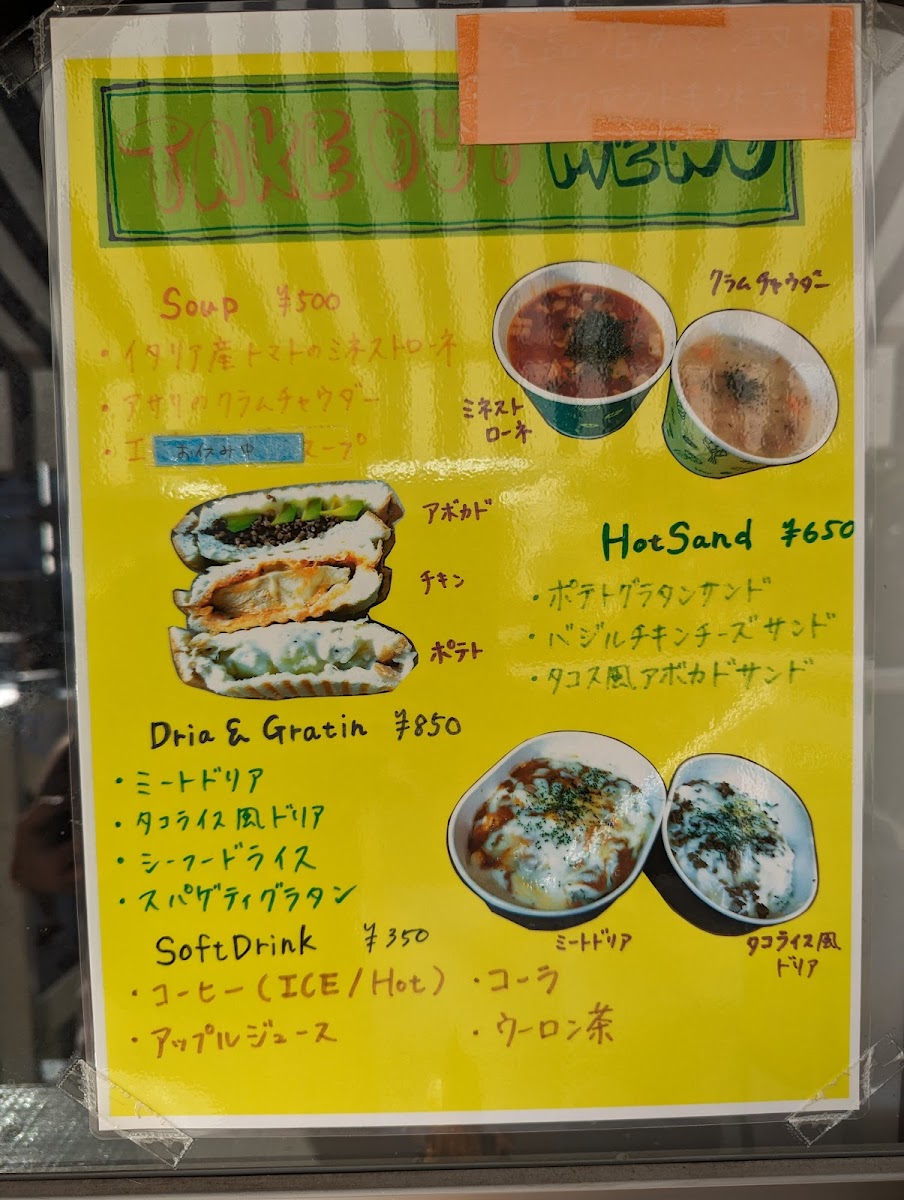 TAKE OUT MENU
Soup ¥500
・イタリア産トマトのミネストローネ
・アサリのクラムチャウダー
・エ お休み中 スープ
クラムチャウダー
ミネスト
ローネ
アボカド
チキン
ポテト
HotSand ¥650
・ポテトグラタンサンド
・バジルチキンチーズサンド
・タコス風アボカドサンド
Dria & Gratin ¥850
・ミートドリア
・タコライス風ドリア
・シーフードライス
・スパゲティグラタン
ミートドリア
タコライス風
ドリア
SoftDrink ¥350
・コーヒー(ICE/Hot) ・コーラ
・アップルジュース ・ウーロン茶